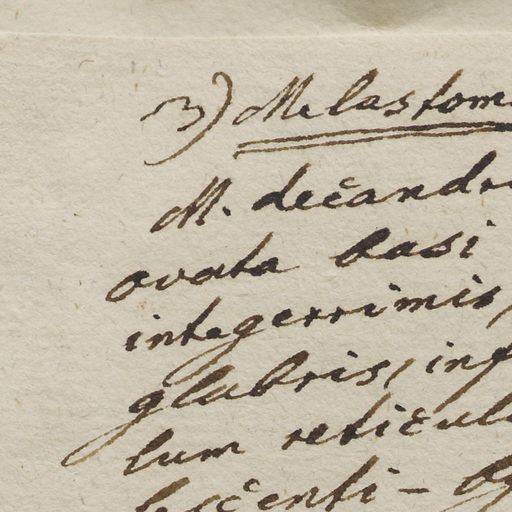 3) Melastom
M. decandr
ovata basi
integerrimis,
glabris, inf
lum reticul
lescenti - ob